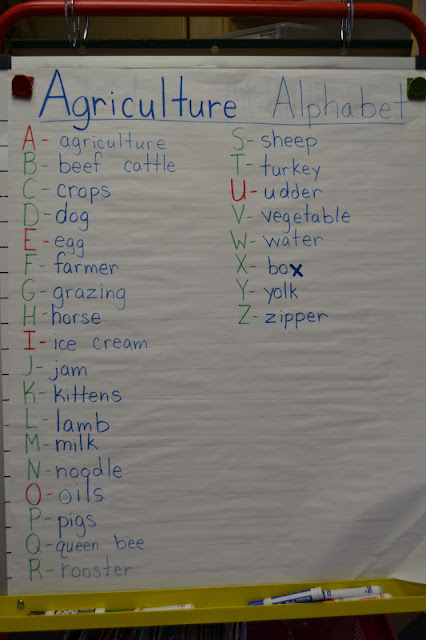 Agriculture Alphabet
A- agriculture
B- beef cattle
C- crops
D- dog
E- egg
F- farmer
G- grazing
H- horse
I- ice cream
J- jam
K- kittens
L- lamb
M- milk
N- noodle
O- oils
P- pigs
Q- queen bee
R- rooster
S- sheep
T- turkey
U- udder
V- vegetable
W- water
X- box
Y- yolk
Z- zipper